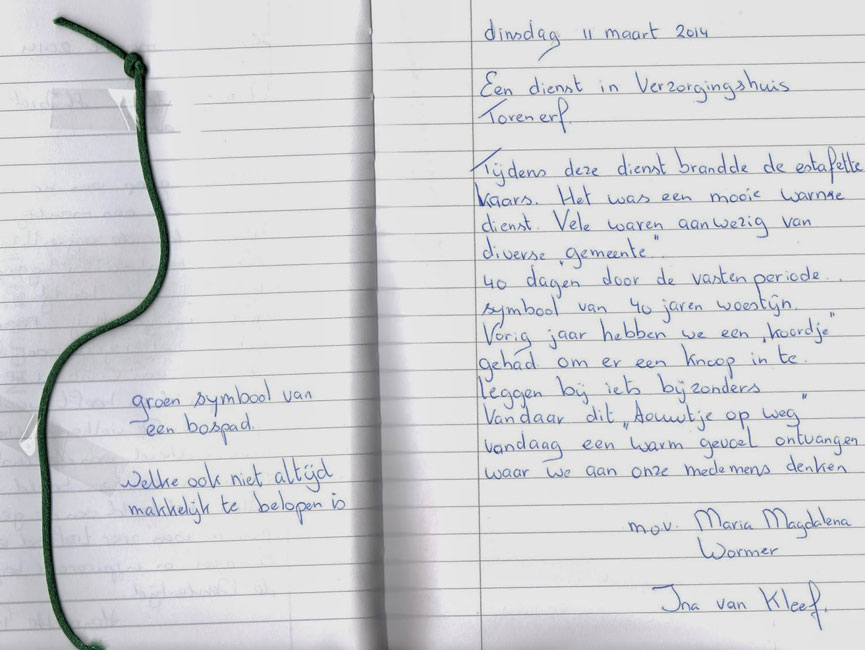 groen symbool van
een bospad.
welke ook niet altijd
makkelijk te belopen is
dinsdag 11 maart 2014
Een dienst in Verzorgingshuis
Torenerf.
Tijdens deze dienst brandde de estafette
kaars. Het was een mooie warme
dienst. Vele waren aanwezig van
diverse „gemeente"
40 dagen door de vastenperiode..
symbool van 40 jaren woestijn.
Vorig jaar hebben we een „koordje"
gehad om er een knoop in te
leggen bij iets bijzonders
Vandaar dit „touwtje op weg"
vandaag een warm gevoel ontvangen
waar we aan onze medemens denken
m.o.v. Maria Magdalena
Wormer
Ina van Kleef.